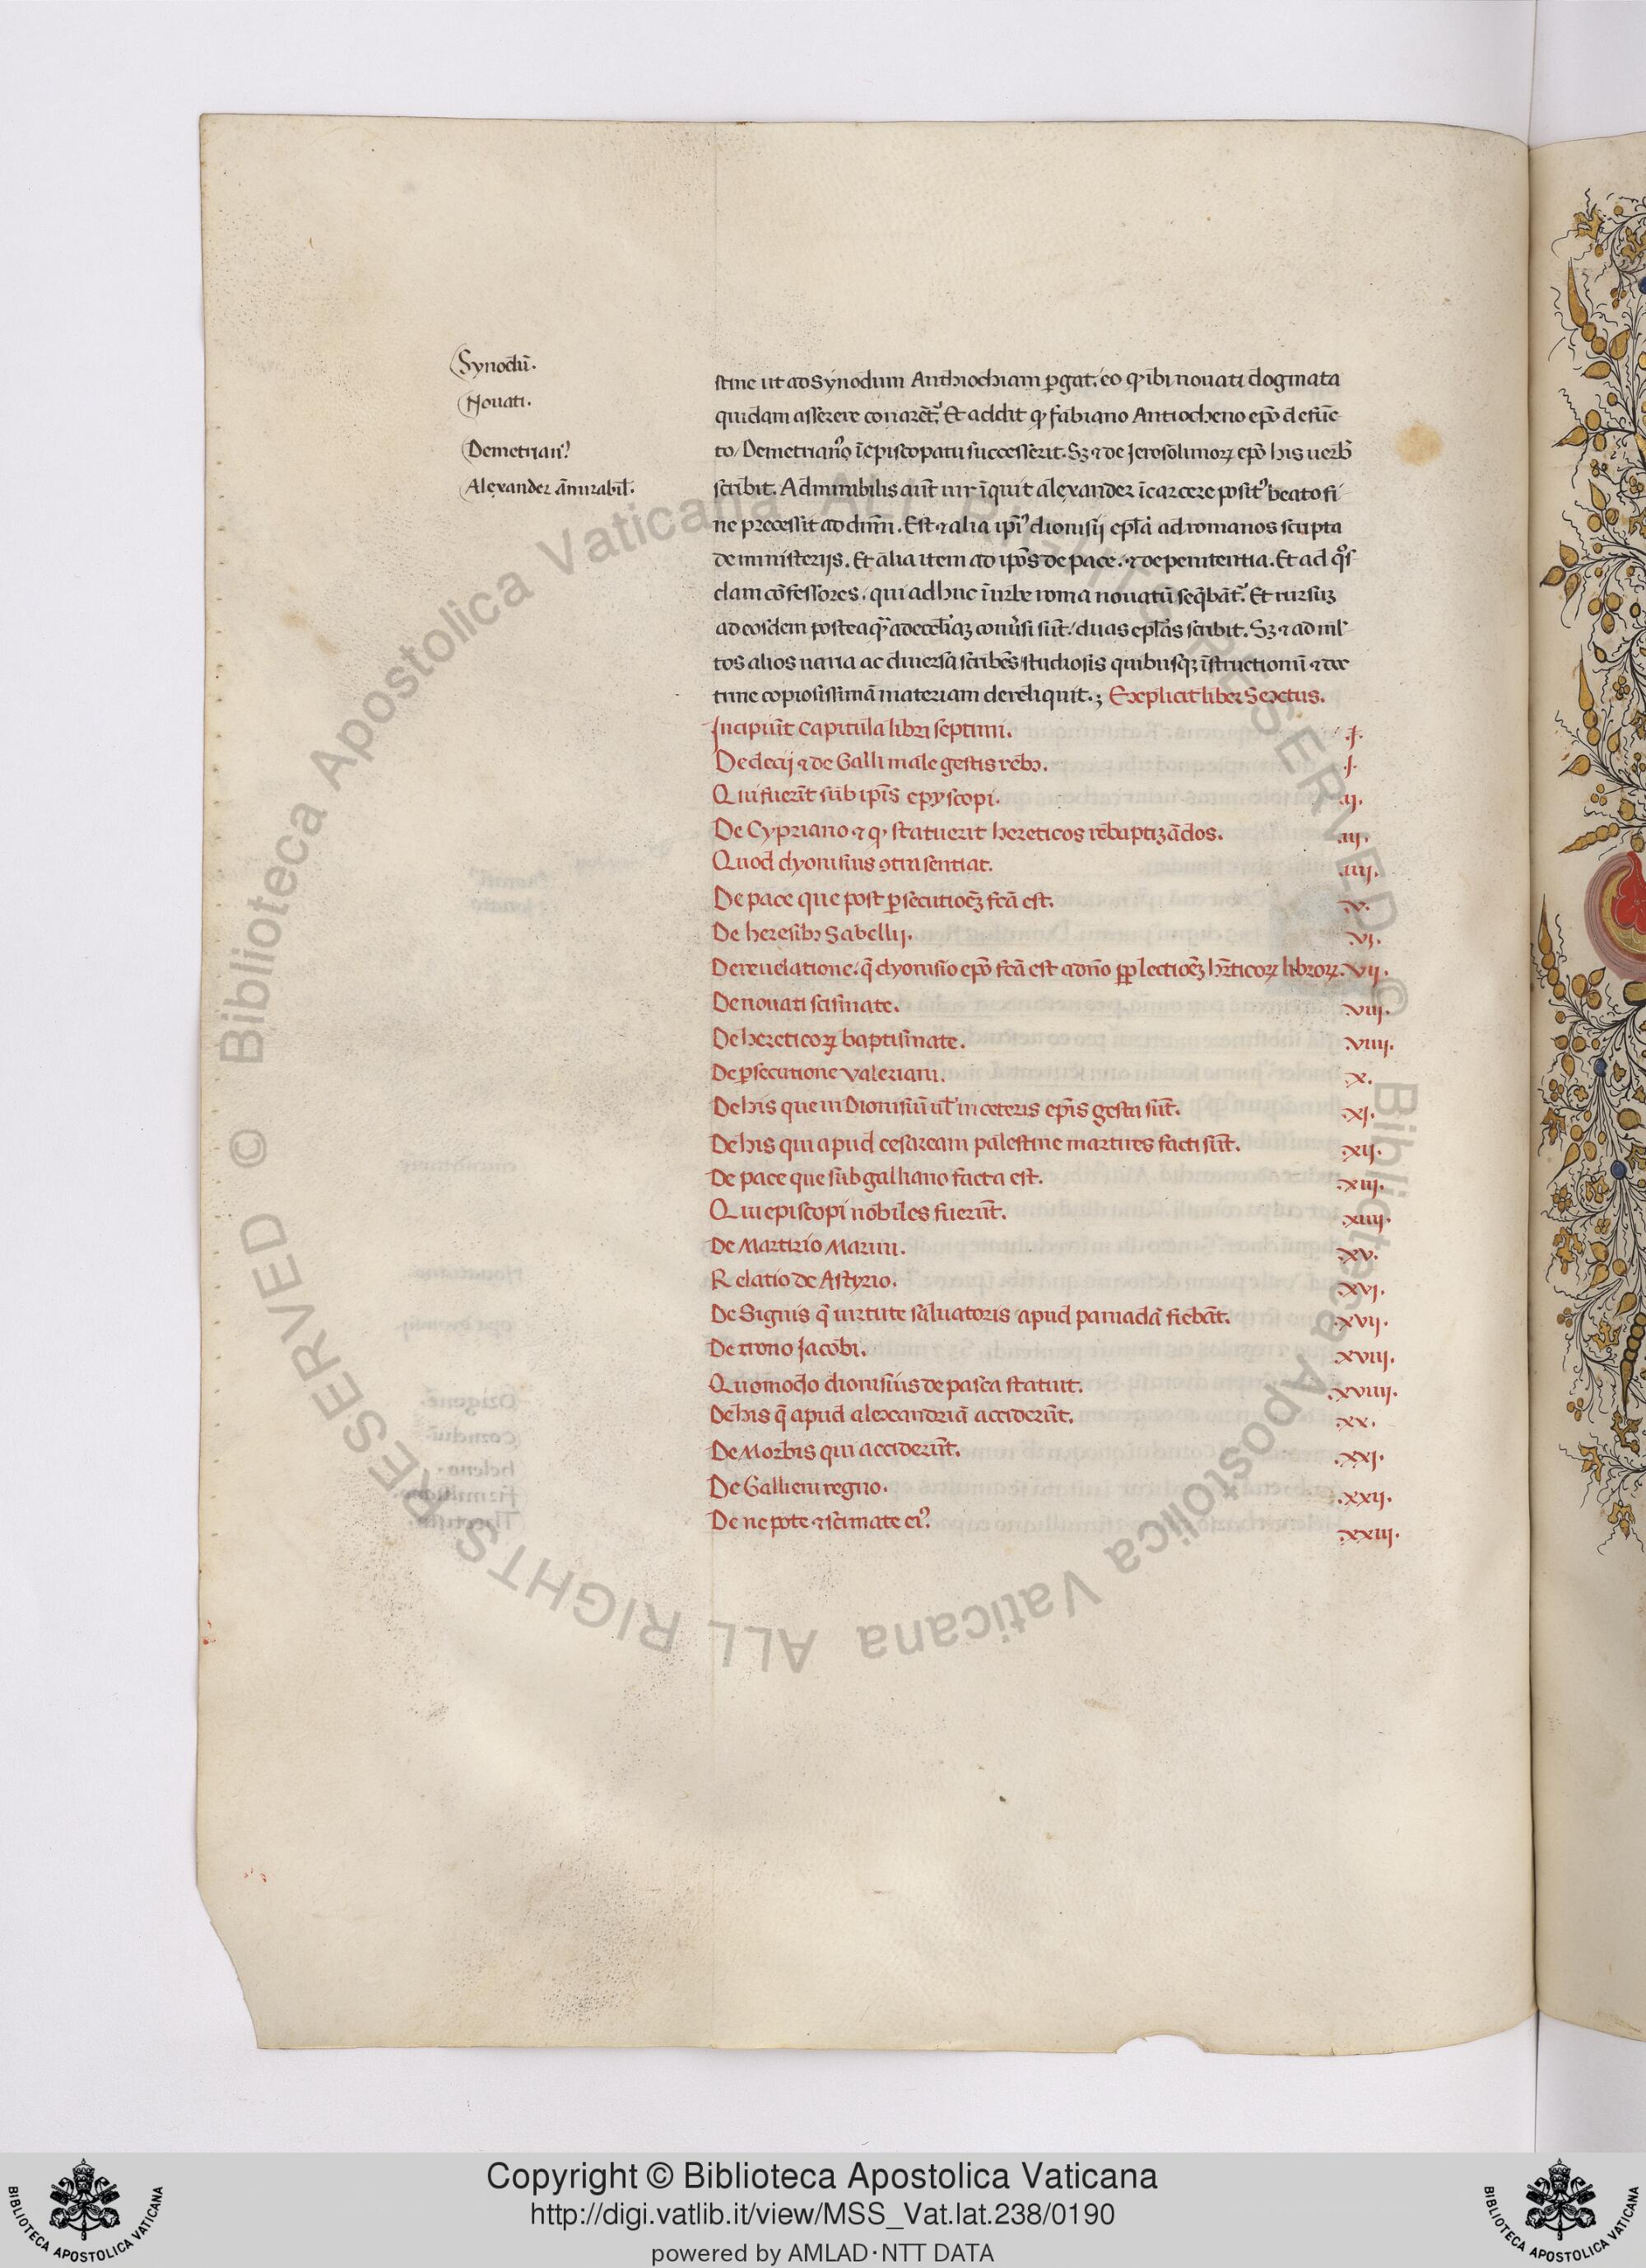 Synodū.
Nouati.
Demetrianꝰ
Alexander ām̄irabil̄.
stine ut ad synodum Anthiochiam ꝑgat, eo ꝙ ibi nouati dogmata
quidam asserere conarēt̉. Et addit ꝙ fabiano Antiocheno ep̄o defūc
to, Demetrianꝰ ī episcopatu successerit. Sꝫ ⁊ de Jerosolimoꝝ ep̄o his uerb̄
scribit. Admirabilis aūt uir īquit alexander ī carcere positꝰ beato fi
ne precessit ad dn̄m. Est ⁊ alia ip̄iꝰ dionisij ep̄la ad romanos scripta
de ministerijs. Et alia item ad ip̄os de pace. ⁊ de penitentia. Et ad qͦs
dam cōfessores, qui adhuc ī urbe roma nouatū seq̄bāt̉. Et rursuꝫ
ad eosdem postea qᷓ ad eccl̄iaꝫ conu̓si sūt, duas ep̄las scribit. Sꝫ ⁊ ad ml̄
tos alios uaria ac diuersa scribēs studiosis quibusqꝫ īstructionū ⁊ doc
trine copiosissimā materiam dereliquit.; Explicit liber Sextus.
Incipiūt Capitula libri septimi. .I.
De decij ⁊ de Galli male gestis reb̄ꝫ. .I.
Qui fuerūt sub ip̄is epyscopi. .ij.
De Cypriano ⁊ ꝙ statuerit hereticos rebaptizādos. .iij.
Quod dyonisius ꝯtra sentiat. .iiij.
De pace que post ꝑsecutioēꝫ fcā est. .v.
De heresibꝫ Sabellij. .vi.
De reuelatione, q̄ dyonisio ep̄o fcā est a dn̄o ꝓp̱ lectioēꝫ hr̄ticoꝝ libroꝝ. .vij.
De nouati scismate. .viij.
De hereticoꝝ baptismate. .viiij.
De ꝑsecutione valeriani. .x.
De his que in Dionisiū ul̄ in ceteris ep̄is gesta sūt. .xi.
De his qui apud cesaream palestine martires facti sūt. .xij.
De pace que sub galliano facta est. .xiij.
Qui episcopi nobiles fuerūt. .xiiij.
De Martirio Marini. .xv.
Relatio de Astyrio. .xvi.
De Signis q̄ uirtute saluatoris apud paniadā fiebāt. .xvij.
De trono Jacobi. .xviij.
Quomodo dionisius de pasca statuit. .xviiij.
De his q̄ apud alexandriā acciderūt. .xx.
De Morbis qui acciderūt. .xxi.
De Gallieni regno. .xxij.
De nepote ⁊ scimate eiꝰ. .xxiij.
© Biblioteca Apostolica Vaticana ALL RIGHTS RESERVED
© Biblioteca Apostolica Vaticana ALL RIGHTS RESERVED
Copyright © Biblioteca Apostolica Vaticana
http://digi.vatlib.it/view/MSS_Vat.lat.238/0190
powered by AMLAD·NTT DATA
BIBLIOTECA APOSTOLICA VATICANA
BIBLIOTECA APOSTOLICA VATICANA